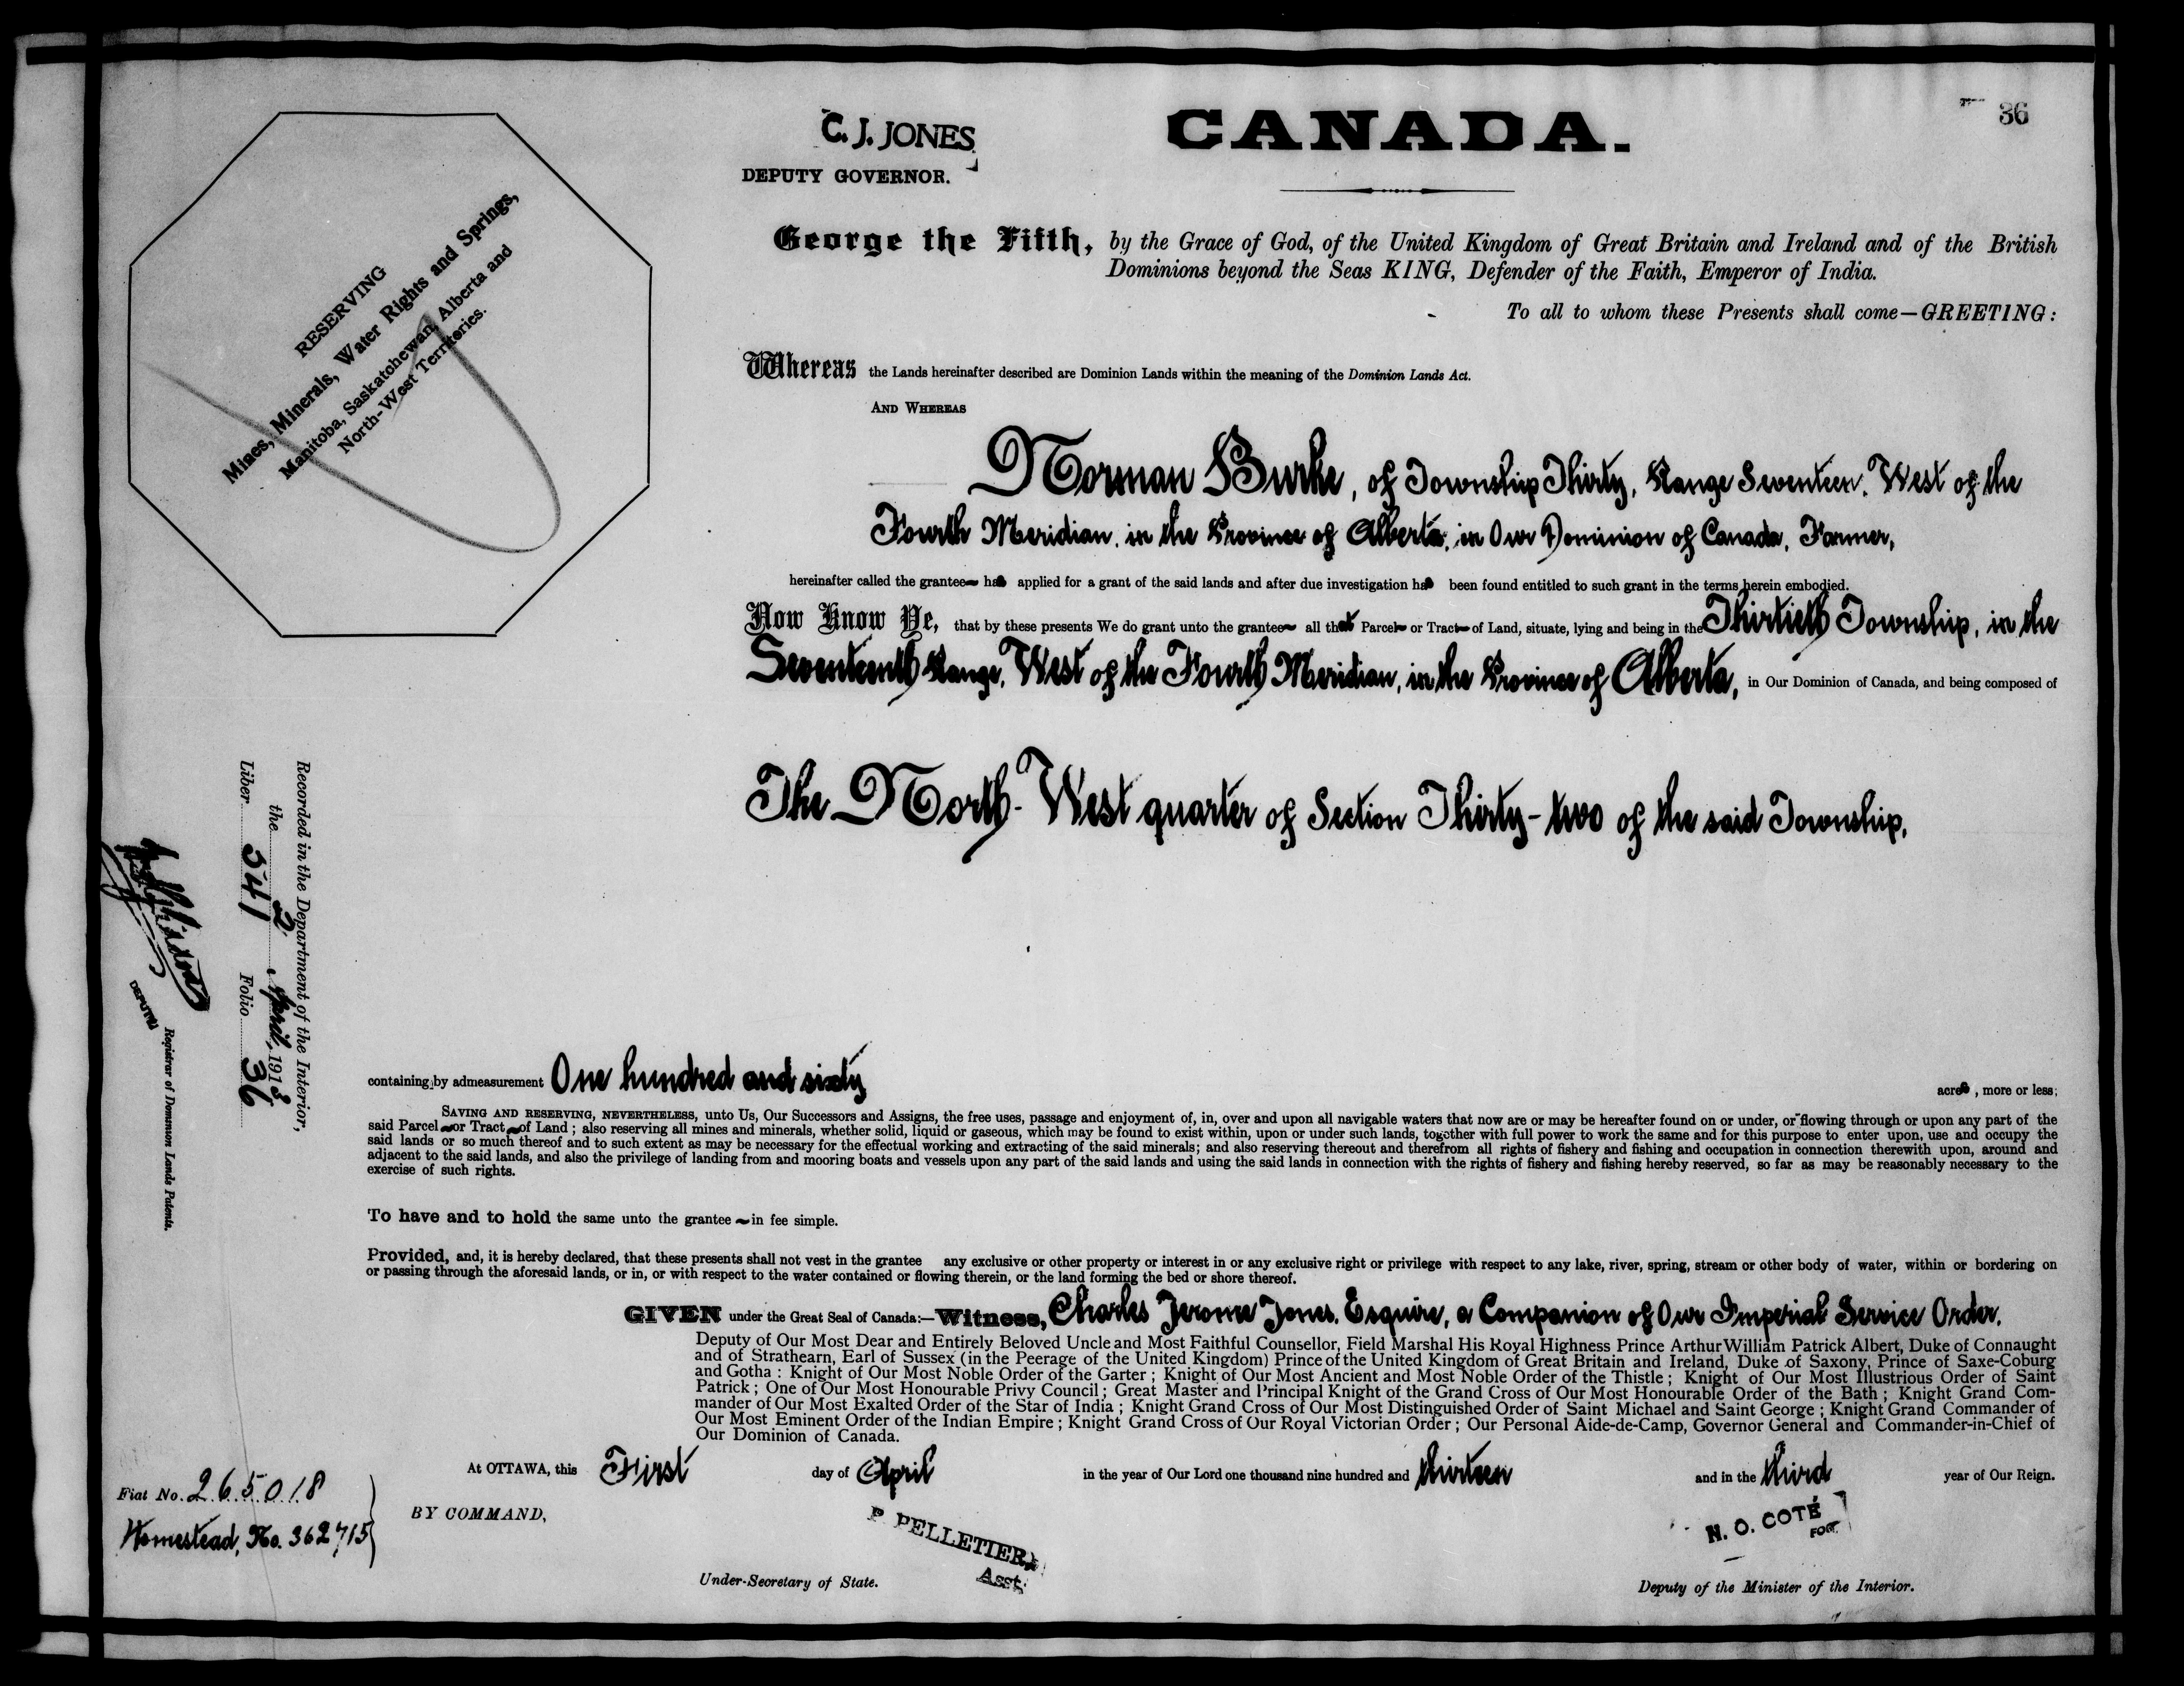 36
C. J. JONES
DEPUTY GOVERNOR.
CANADA.
RESERVING
Mines, Minerals, Water Rights and Springs,
Manitoba, Saskatchewan, Alberta and
North-West Territories.
George the Fifth, by the Grace of God, of the United Kingdom of Great Britain and Ireland and of the British
Dominions beyond the Seas KING, Defender of the Faith, Emperor of India.
To all to whom these Presents shall come—GREETING:
Whereas the Lands hereinafter described are Dominion Lands within the meaning of the Dominion Lands Act.
AND WHEREAS
Norman Burke, of Township Thirty, Range Seventeen, West of the
Fourth Meridian, in the Province of Alberta, in Our Dominion of Canada, Farmer,
hereinafter called the grantee has applied for a grant of the said lands and after due investigation has been found entitled to such grant in the terms herein embodied.
Now Know Ye, that by these presents We do grant unto the grantee all that Parcel or Tract of Land, situate, lying and being in the Thirtieth Township, in the
Seventeenth Range, West of the Fourth Meridian, in the Province of Alberta, in Our Dominion of Canada, and being composed of
The North-West quarter of Section Thirty-two of the said Township,
Recorded in the Department of the Interior,
the 2 April, 1913
Liber 541 Folio 36
DEPUTY
Registrar of Dominion Lands Patents.
containing by admeasurement One hundred and sixty acres, more or less;
SAVING AND RESERVING, NEVERTHELESS, unto Us, Our Successors and Assigns, the free uses, passage and enjoyment of, in, over and upon all navigable waters that now are or may be hereafter found on or under, or flowing through or upon any part of the
said Parcel or Tract of Land; also reserving all mines and minerals, whether solid, liquid or gaseous, which may be found to exist within, upon or under such lands, together with full power to work the same and for this purpose to enter upon, use and occupy the
said lands or so much thereof and to such extent as may be necessary for the effectual working and extracting of the said minerals; and also reserving thereout and therefrom all rights of fishery and fishing and occupation in connection therewith upon, around and
adjacent to the said lands, and also the privilege of landing from and mooring boats and vessels upon any part of the said lands and using the said lands in connection with the rights of fishery and fishing hereby reserved, so far as may be reasonably necessary to the
exercise of such rights.
To have and to hold the same unto the grantee in fee simple.
Provided, and, it is hereby declared, that these presents shall not vest in the grantee any exclusive or other property or interest in or any exclusive right or privilege with respect to any lake, river, spring, stream or other body of water, within or bordering on
or passing through the aforesaid lands, or in, or with respect to the water contained or flowing therein, or the land forming the bed or shore thereof.
GIVEN under the Great Seal of Canada:—Witness, Charles Jerome Jones, Esquire, a Companion of Our Imperial Service Order,
Deputy of Our Most Dear and Entirely Beloved Uncle and Most Faithful Counsellor, Field Marshal His Royal Highness Prince Arthur William Patrick Albert, Duke of Connaught
and of Strathearn, Earl of Sussex (in the Peerage of the United Kingdom) Prince of the United Kingdom of Great Britain and Ireland, Duke of Saxony, Prince of Saxe-Coburg
and Gotha: Knight of Our Most Noble Order of the Garter; Knight of Our Most Ancient and Most Noble Order of the Thistle; Knight of Our Most Illustrious Order of Saint
Patrick; One of Our Most Honourable Privy Council; Great Master and Principal Knight of the Grand Cross of Our Most Honourable Order of the Bath; Knight Grand Com-
mander of Our Most Exalted Order of the Star of India; Knight Grand Cross of Our Most Distinguished Order of Saint Michael and Saint George; Knight Grand Commander of
Our Most Eminent Order of the Indian Empire; Knight Grand Cross of Our Royal Victorian Order; Our Personal Aide-de-Camp, Governor General and Commander-in-Chief of
Our Dominion of Canada.
At OTTAWA, this First day of April in the year of Our Lord one thousand nine hundred and thirteen and in the third year of Our Reign.
Fiat No. 265018
Homestead, No. 362715
BY COMMAND,
P. PELLETIER,
Asst.
Under-Secretary of State.
N. O. COTÉ
FOR
Deputy of the Minister of the Interior.